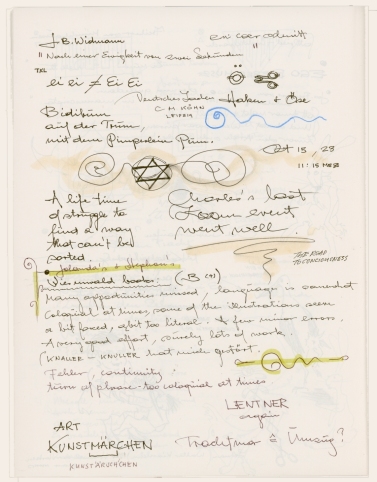 J.B. Widmann
"Nach einer Ewigkeit von einer Sekunde"
TEL
ei ei ≠ Ei Ei
Deutsche
C M KÖHN
LEIPZIG
Haken + Öse
auf der
mit dem Pimperlein Pum.
Oct 13, 23
11:15
A life time
of struggle to
find a way
that can't be
sorted.
Charles's last
Zoom event
went well.
THE ROAD
TO CONCIOUSNESS
Jolanda's + Stephan's
Vierwald books: (-B (4)
Many opportunities missed, language is somewhat
coloqial at times, some of the illustrations seem
a bit forced, a bit too literal. A few minor errors.
A very good effort, surely lots of work.
(KNALLER - KNÜLLER hat mich gestört.
Fehler, continuity.
turn of phrase too coloqial at times
LENTNER
again
ART
KUNSTMÄRCHEN
KUNSTÄRSCHCHEN
Tradition ≙ Umzug?